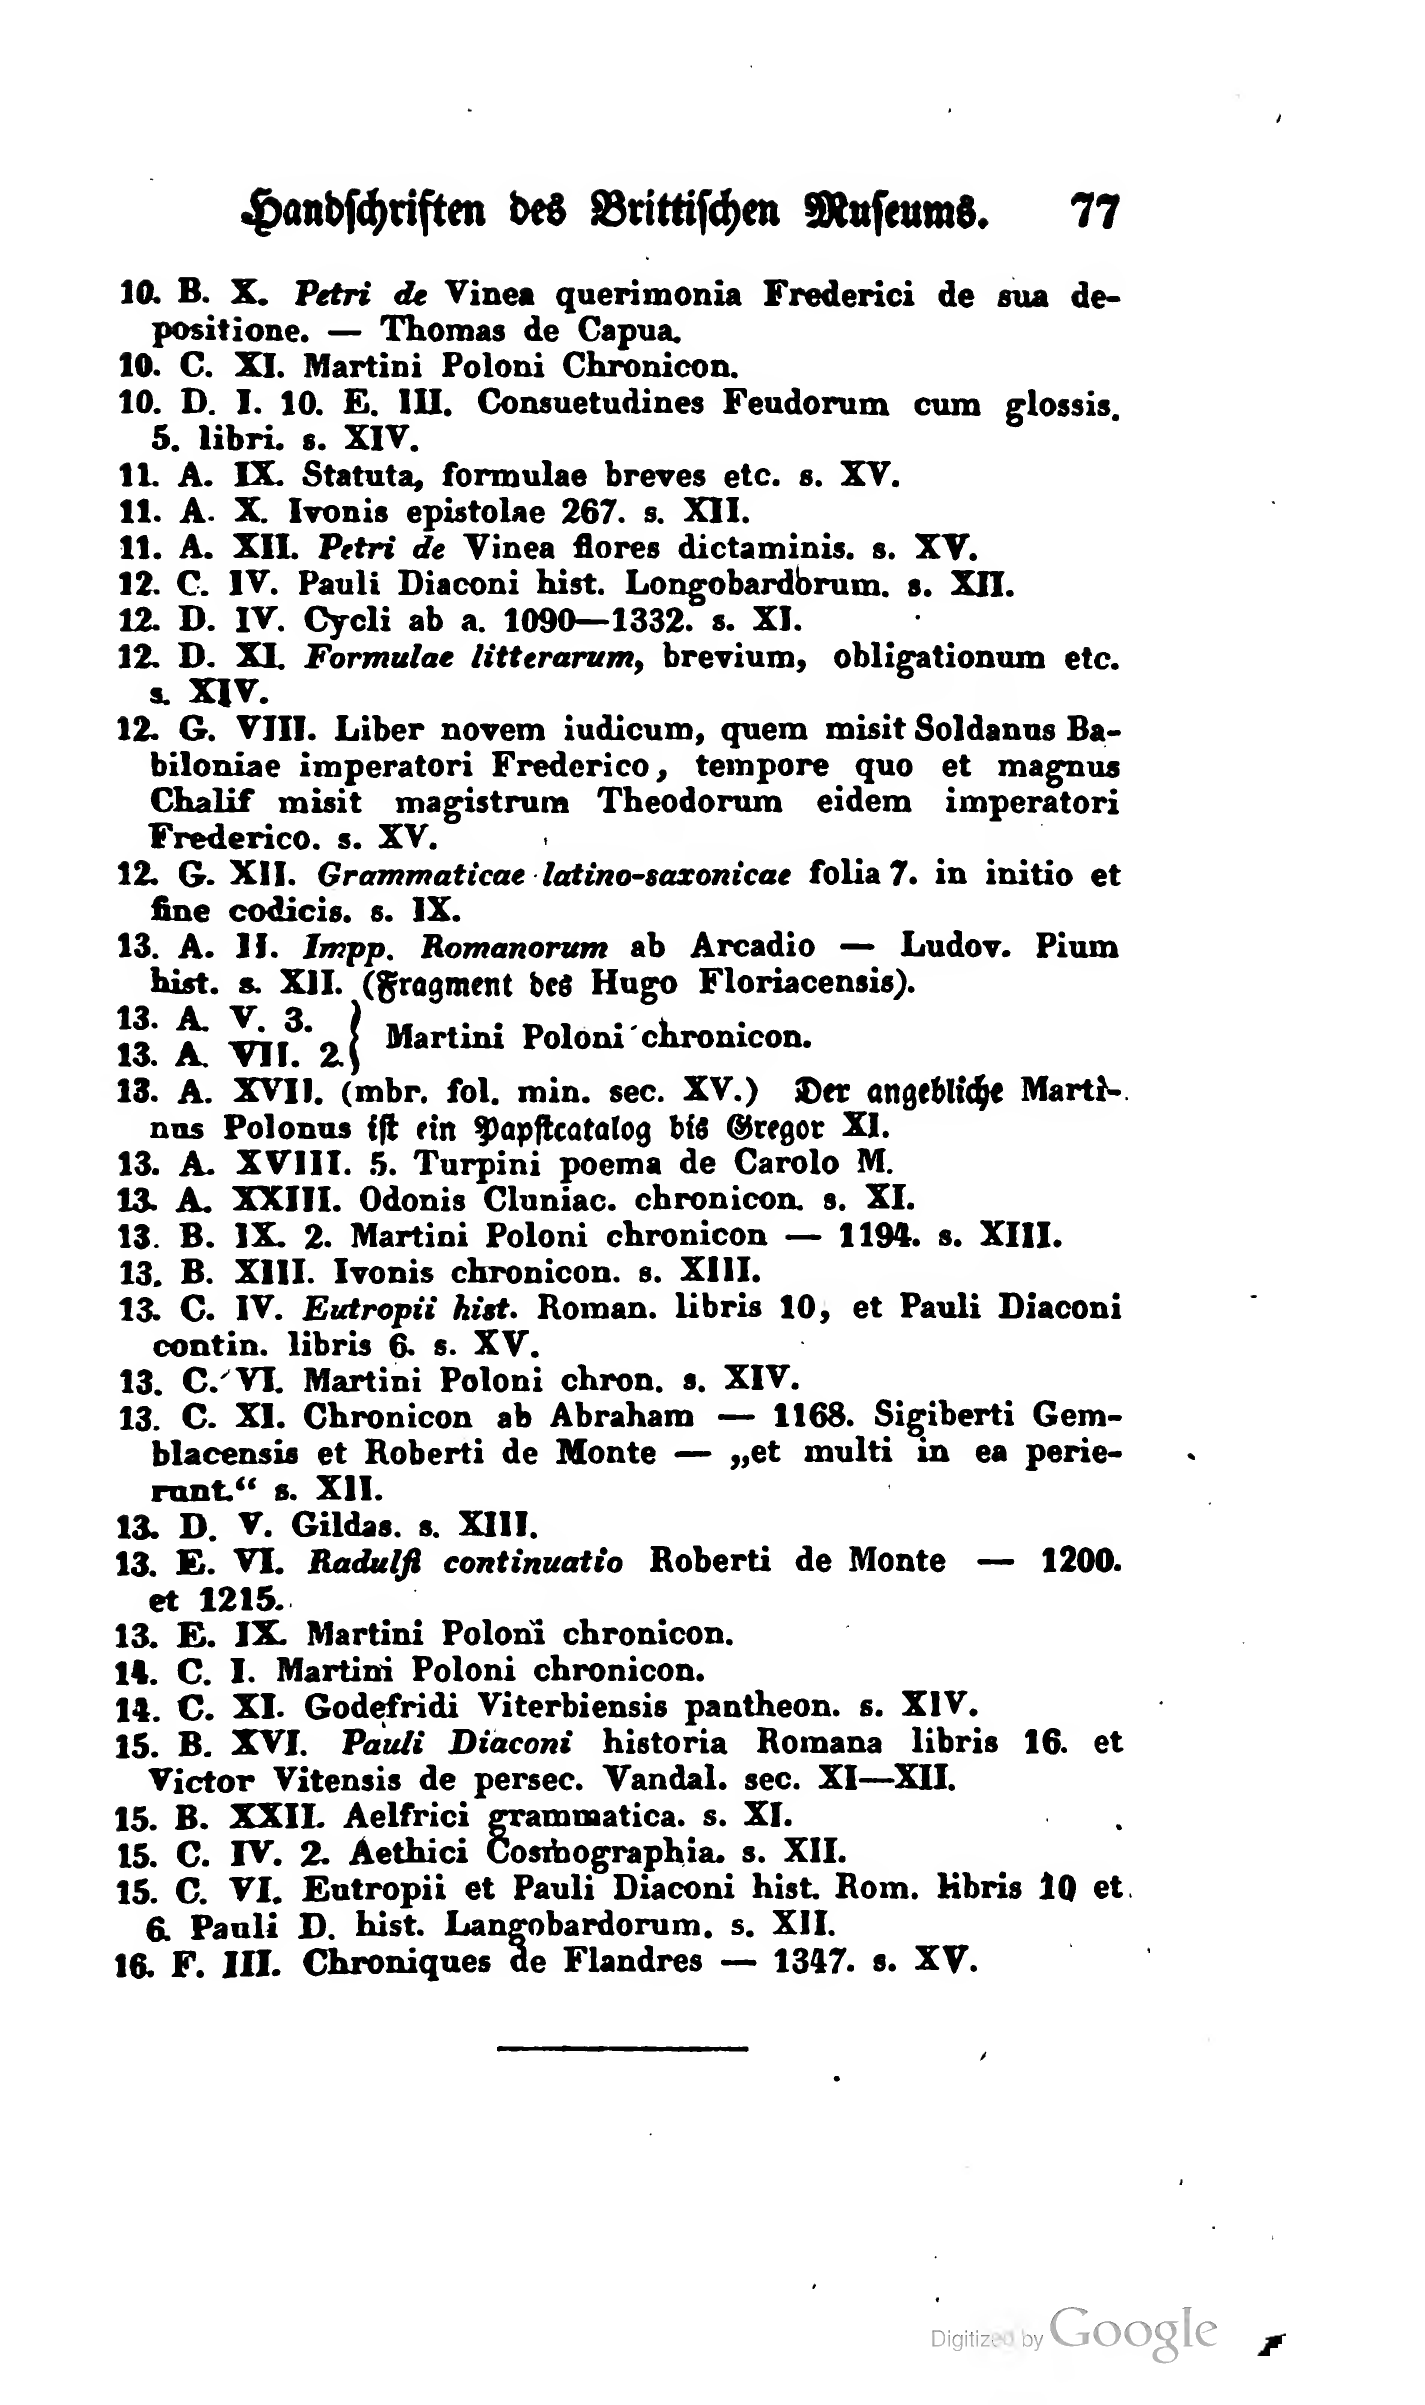 Handschriften des Brittischen Museums. 77
10. B. X. Petri de Vinea querimonia Frederici de sua de-
positione. — Thomas de Capua.
10. C. XI. Martini Poloni Chronicon.
10. D. I. 10. E. III. Consuetudines Feudorum cum glossis.
5. libri. s. XIV.
11. A. IX. Statuta, formulae breves etc. s. XV.
11. A. X. Ivonis epistolae 267. s. XII.
11. A. XII. Petri de Vinea flores dictaminis. s. XV.
12. C. IV. Pauli Diaconi hist. Longobardorum. s. XII.
12. D. IV. Cycli ab a. 1090—1332. s. XI.
12. D. XI. Formulae litterarum, brevium, obligationum etc.
s. XIV.
12. G. VIII. Liber novem iudicum, quem misit Soldanus Ba-
biloniae imperatori Frederico, tempore quo et magnus
Chalif misit magistrum Theodorum eidem imperatori
Frederico. s. XV.
12. G. XII. Grammaticae latino-saxonicae folia 7. in initio et
fine codicis. s. IX.
13. A. II. Impp. Romanorum ab Arcadio — Ludov. Pium
hist. s. XII. (Fragment des Hugo Floriacensis).
13. A. V. 3.
13. A. VII. 2. } Martini Poloni chronicon.
13. A. XVII. (mbr. fol. min. sec. XV.) Der angebliche Marti-
nus Polonus ist ein Papstcatalog bis Gregor XI.
13. A. XVIII. 5. Turpini poema de Carolo M.
13. A. XXIII. Odonis Cluniac. chronicon. s. XI.
13. B. IX. 2. Martini Poloni chronicon — 1194. s. XIII.
13. B. XIII. Ivonis chronicon. s. XIII.
13. C. IV. Eutropii hist. Roman. libris 10, et Pauli Diaconi
contin. libris 6. s. XV.
13. C. VI. Martini Poloni chron. s. XIV.
13. C. XI. Chronicon ab Abraham — 1168. Sigiberti Gem-
blacensis et Roberti de Monte — „et multi in ea perie-
runt.“ s. XII.
13. D. V. Gildas. s. XIII.
13. E. VI. Radulfi continuatio Roberti de Monte — 1200.
et 1215.
13. E. IX. Martini Poloni chronicon.
14. C. I. Martini Poloni chronicon.
14. C. XI. Godefridi Viterbiensis pantheon. s. XIV.
15. B. XVI. Pauli Diaconi historia Romana libris 16. et
Victor Vitensis de persec. Vandal. sec. XI—XII.
15. B. XXII. Aelfrici grammatica. s. XI.
15. C. IV. 2. Aethici Cosmographia. s. XII.
15. C. VI. Eutropii et Pauli Diaconi hist. Rom. libris 10 et
6. Pauli D. hist. Langobardorum. s. XII.
16. F. III. Chroniques de Flandres — 1347. s. XV.
Digitized by Google